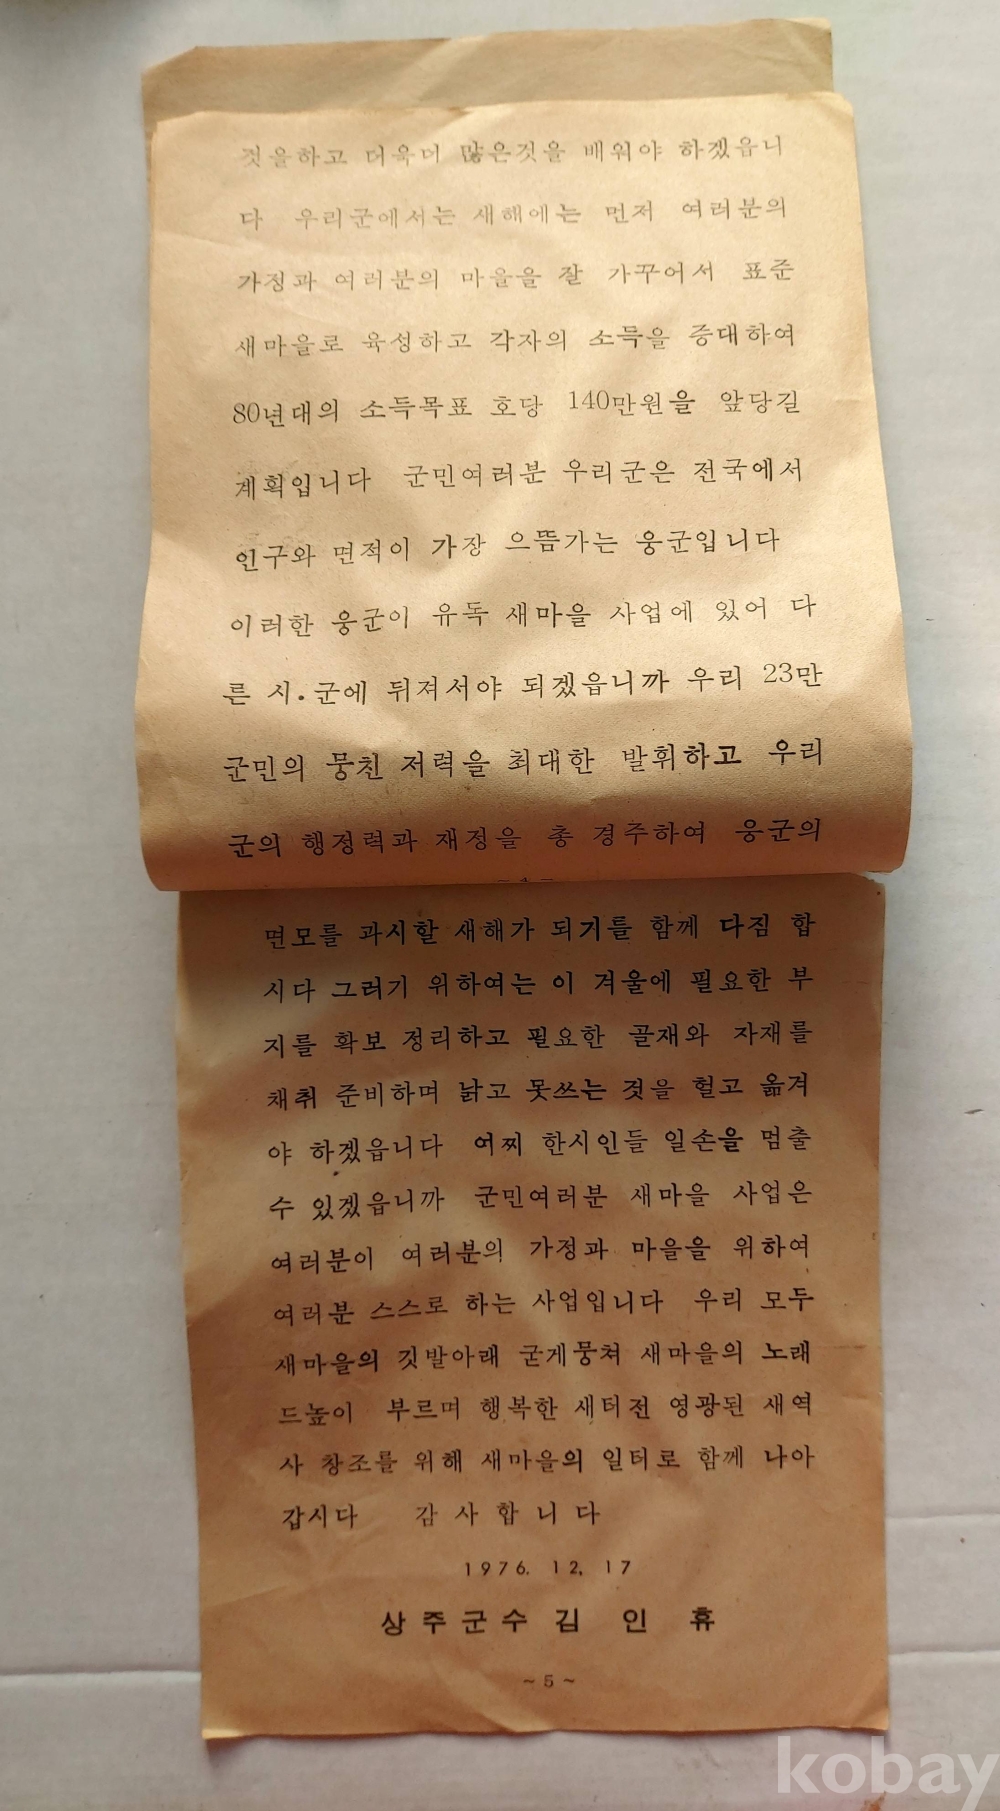 것을하고 더욱더 많은것을 배워야 하겠읍니
다 우리군에서는 새해에는 먼저 여러분의
가정과 여러분의 마을을 잘 가꾸어서 표준
새마을로 육성하고 각자의 소득을 증대하여
80년대의 소득목표 호당 140만원을 앞당길
계획입니다 군민여러분 우리군은 전국에서
인구와 면적이 가장 으뜸가는 웅군입니다
이러한 웅군이 유독 새마을 사업에 있어 다
른 시.군에 뒤져서야 되겠읍니까 우리 23만
군민의 뭉친 저력을 최대한 발휘하고 우리
군의 행정력과 재정을 총 경주하여 웅군의
면모를 과시할 새해가 되기를 함께 다짐 합
시다 그러기 위하여는 이 겨울에 필요한 부
지를 확보 정리하고 필요한 골재와 자재를
채취 준비하며 낡고 못쓰는 것을 헐고 옮겨
야 하겠읍니다 어찌 한시인들 일손을 멈출
수 있겠읍니까 군민여러분 새마을 사업은
여러분이 여러분의 가정과 마을을 위하여
여러분 스스로 하는 사업입니다 우리 모두
새마을의 깃발아래 굳게뭉쳐 새마을의 노래
드높이 부르며 행복한 새터전 영광된 새역
사 창조를 위해 새마을의 일터로 함께 나아
갑시다 감 사 합 니 다
1976. 12. 17
상주군수 김 인 휴
~ 5 ~
kobay